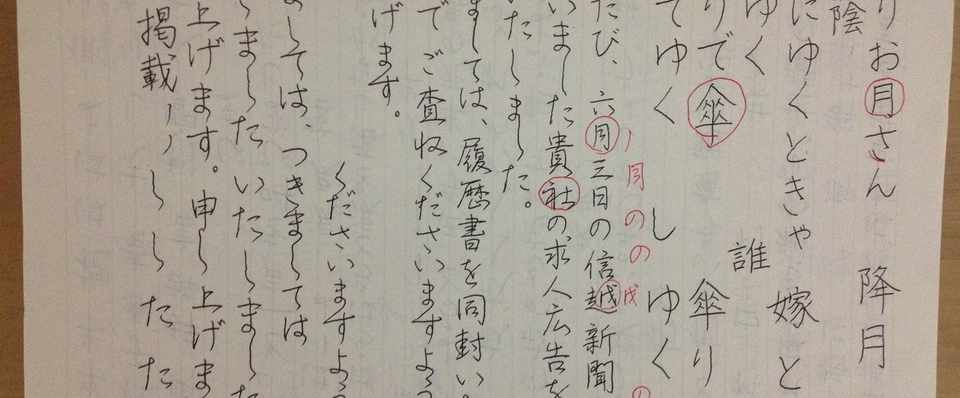 りお月さん 降月
陰
にゆくときゃ 嫁と
ゆく 誰
りで傘 傘り
てゆく し ゆく
ノ月のの戌
たび、六月三日の信越新聞
いました貴社の求人広告を
たしました。
ましては、履歴書を同封い
でご査収くださいますよう
げます。
くださいますよう
ましては、つきましては
しましたいたしました
上げます。申し上げま
掲載ノノししたた